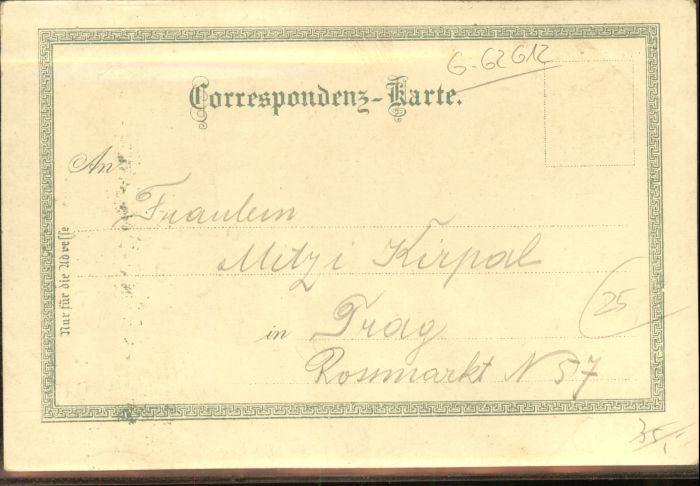 G-62612
Correspondenz-Karte.
An
Fräulein
Mitzi Kirpal
in Prag
Rossmarkt N 57
Nur für die Adresse
25
35,-